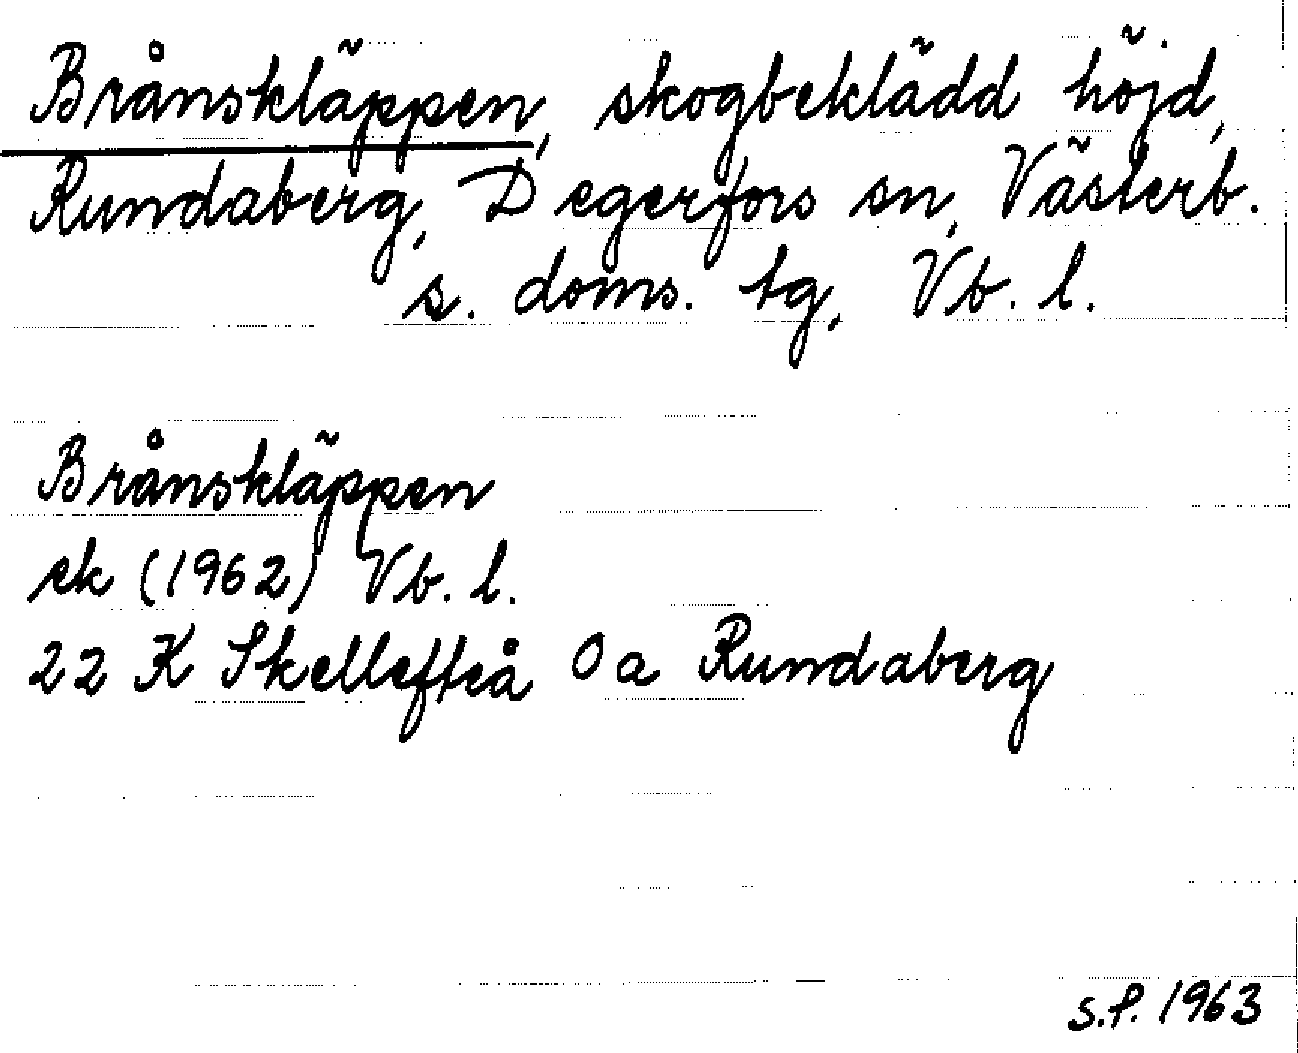 Brånskläppen, skogbeklädd höjd,
Rundaberg, Degerfors sn, Västerb.
s. doms. tg, Vb. l.
Brånskläppen
ek (1962) Vb. l.
22 K Skellefteå Oa Rundaberg
S.P. 1963